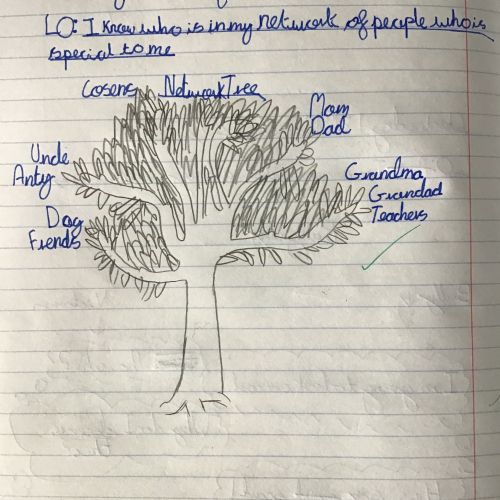 LO: I know who is in my network of people who is
special to me
Cosens
Network Tree
Mom
Dad
Uncle
Anty
Grandma
Grandad
Teachers
Dog
Fiends